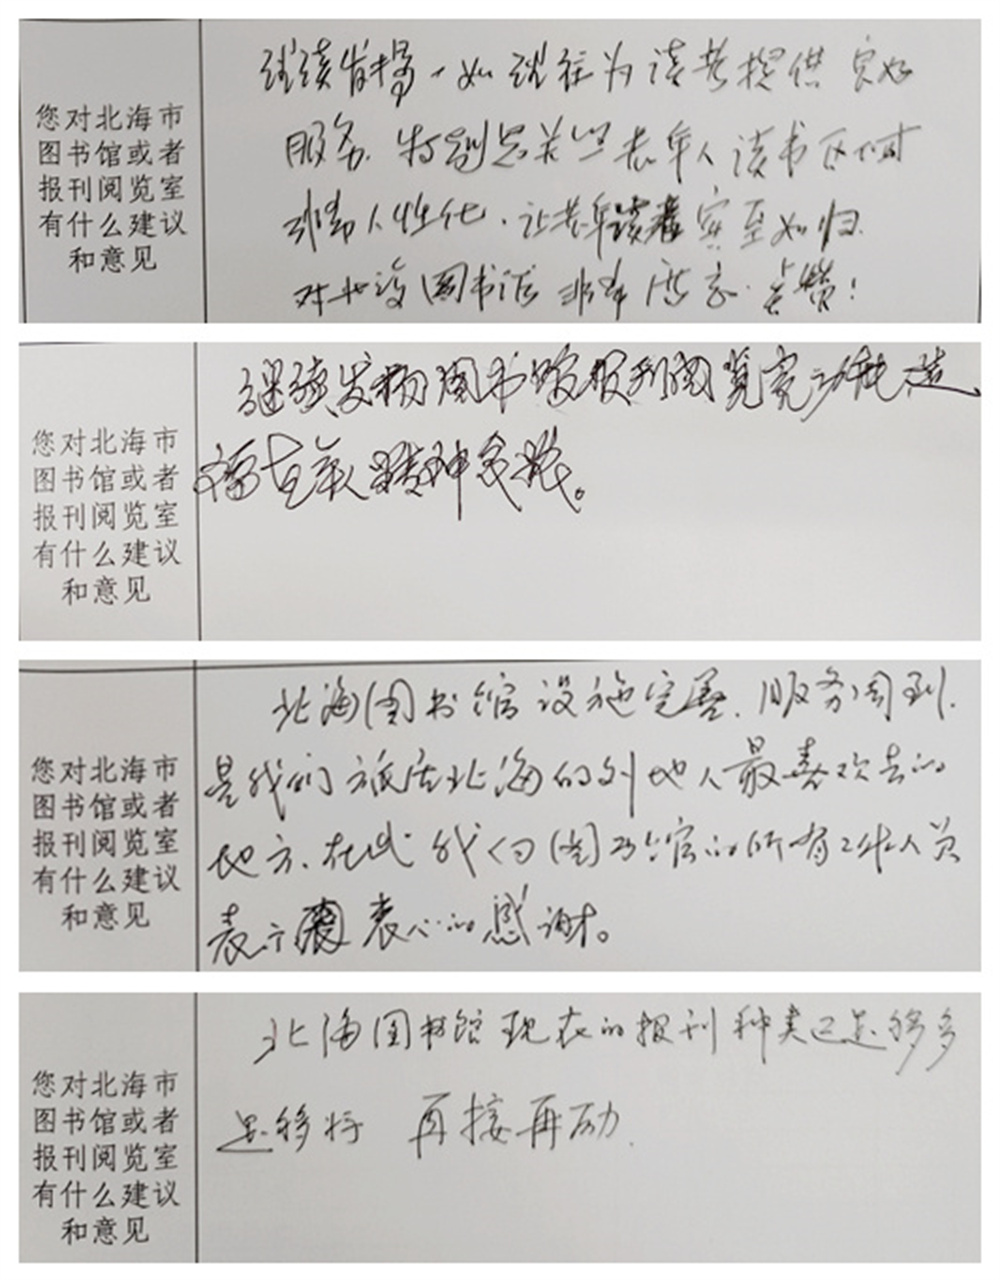 您对北海市
图书馆或者
报刊阅览室
有什么建议
和意见
继续发扬,一如既往为读者提供良好
服务,特别是关心老年人读书
非常人性化,让老年读者宾至如归.
对北海图书馆非常满意.点赞!
您对北海市
图书馆或者
报刊阅览室
有什么建议
和意见
继续发扬图书馆报刊阅览室功能,造
福老年人精神食粮。
您对北海市
图书馆或者
报刊阅览室
有什么建议
和意见
北海图书馆设施完善,服务周到,
是我们旅居北海的外地人最喜欢去的
地方,在此我们向图书馆的所有工作人员
表示衷心的感谢。
您对北海市
图书馆或者
报刊阅览室
有什么建议
和意见
北海图书馆现在的报刊种类已足够多
足够好 再接再励.